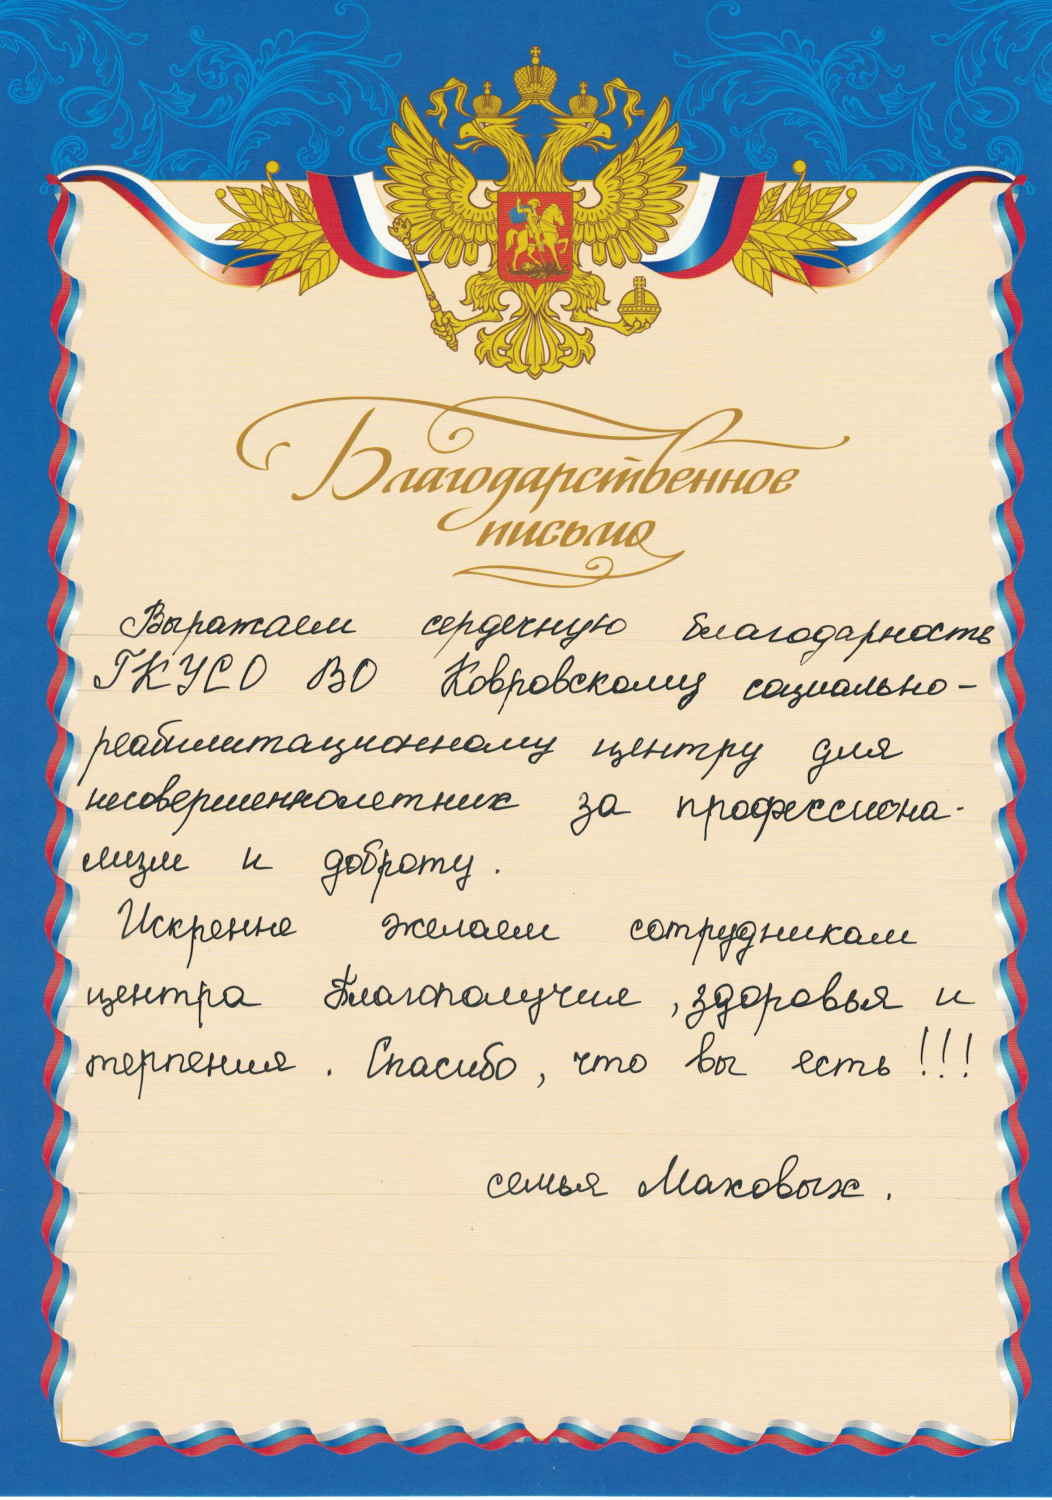 Благодарственное
письмо
Выражаем сердечную благодарность
ГКУСО ВО Ковровскому социально-
реабилитационному центру для
несовершеннолетних за профессиона-
лизм и доброту.
Искренне желаем сотрудникам
центра благополучия, здоровья и
терпения. Спасибо, что вы есть!!!
семья Маховых.